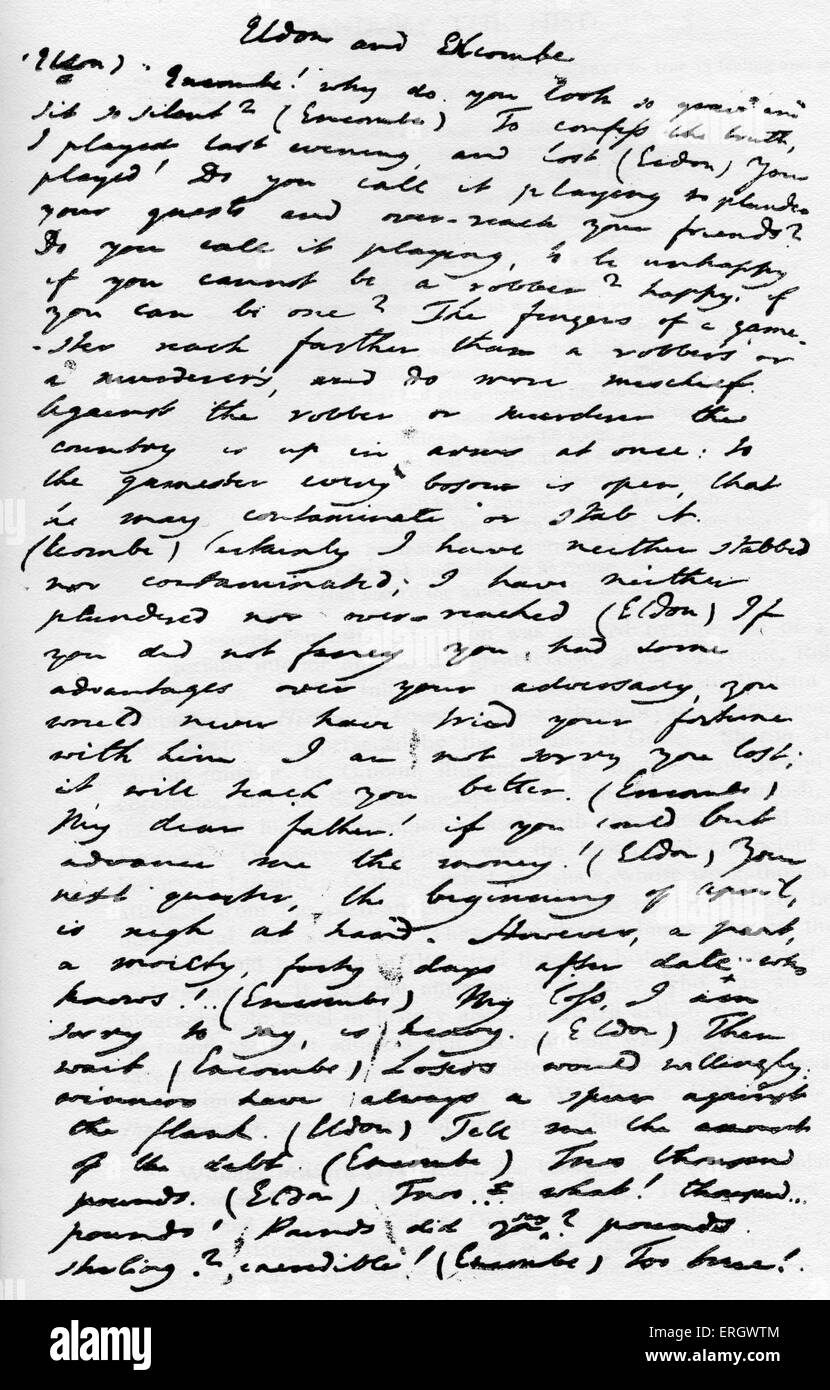 Eldon and Encombe
(Eldon) Encombe! why do you look so grave and
sit so silent? (Encombe) To confess the truth,
I played last evening, and lost (Eldon) You
played! Do you call it playing to plunder
your guests and over-reach your friends?
Do you call it playing, to be unhappy
if you cannot be a robber? happy, if
you can be one? The fingers of a game-
-ster reach farther than a robber's or
a murderer's, and do more mischief.
Against the robber or murderer the
country is up in arms at once: to
the gamester every bosom is open, that
he may contaminate or stab it.
(Ecombe) Certainly I have neither stabbed
nor contaminated; I have neither
plundered nor over-reached (Eldon) If
you did not fancy you had some
advantages over your adversary, you
would never have tried your fortune
with him. I am not sorry you lost;
it will teach you better. (Encombe)
My dear father! if you could but
advance me the money! (Eldon) Your
next quarter, the beginning of april,
is nigh at hand. However, a part,
a moiety, forty days after date.. who
knows! (Encombe) My loss, I am
sorry to say, is heavy. (Eldon) Then
wait. (Encombe) Losers would willingly.
winners have always a spur against
the flank. (Eldon) Tell me the amount
of the debt. (Encombe) Two thousand
pounds. (Eldon) Two.. what! thousand...
pounds! Pounds did you say? pounds
sterling? incredible! (Encombe) Too true!
alamy
Image ID: ERGWTM
www.alamy.com